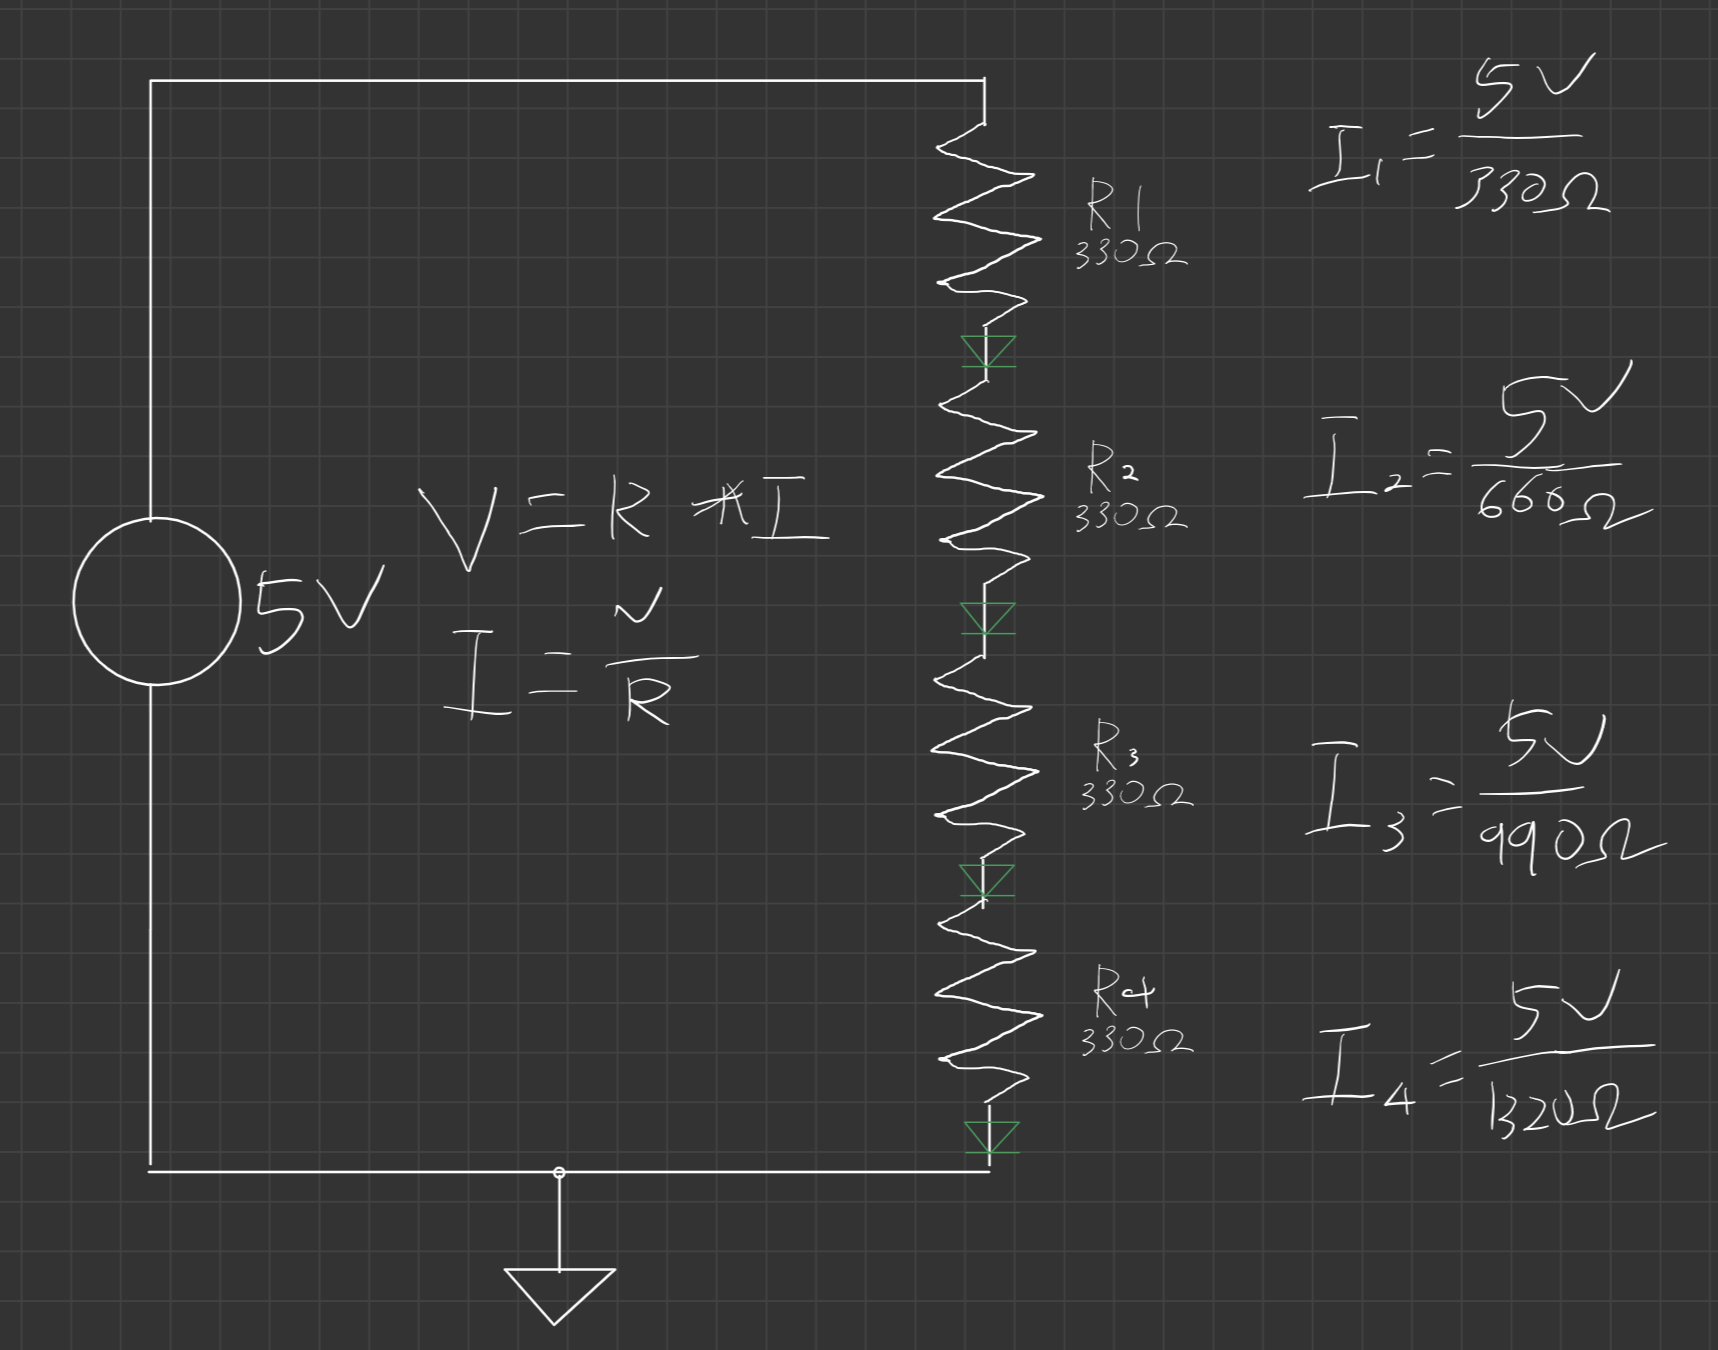 5V
V = R * I
I = V / R
R1
330Ω
R2
330Ω
R3
330Ω
R4
330Ω
I1 = 5V / 330Ω
I2 = 5V / 660Ω
I3 = 5V / 990Ω
I4 = 5V / 1320Ω